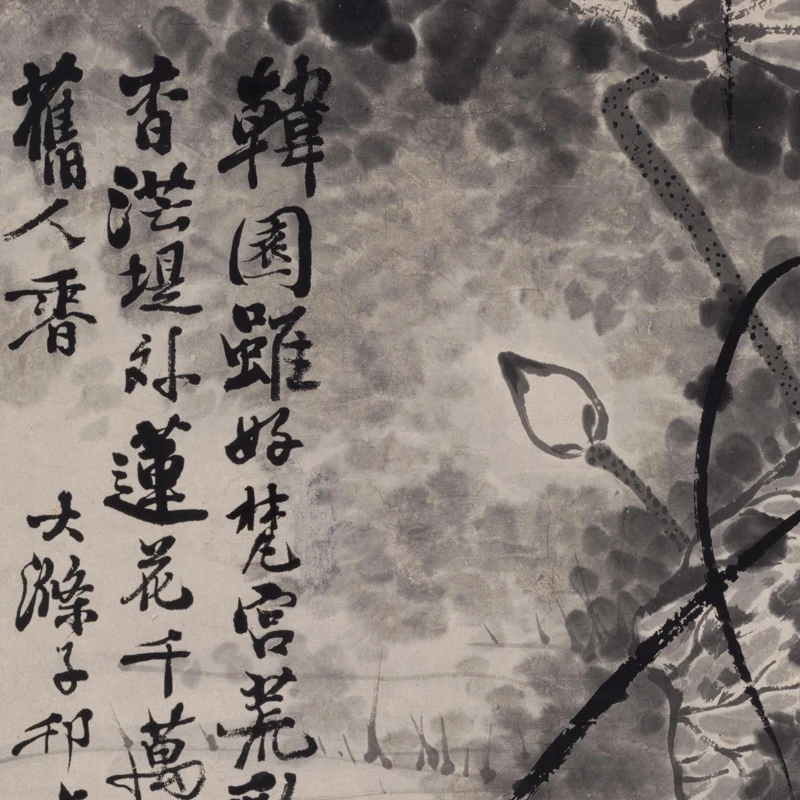 韓園雖好梵宮荒
杳茫堤外蓮花千萬
舊人香
大滌子邗